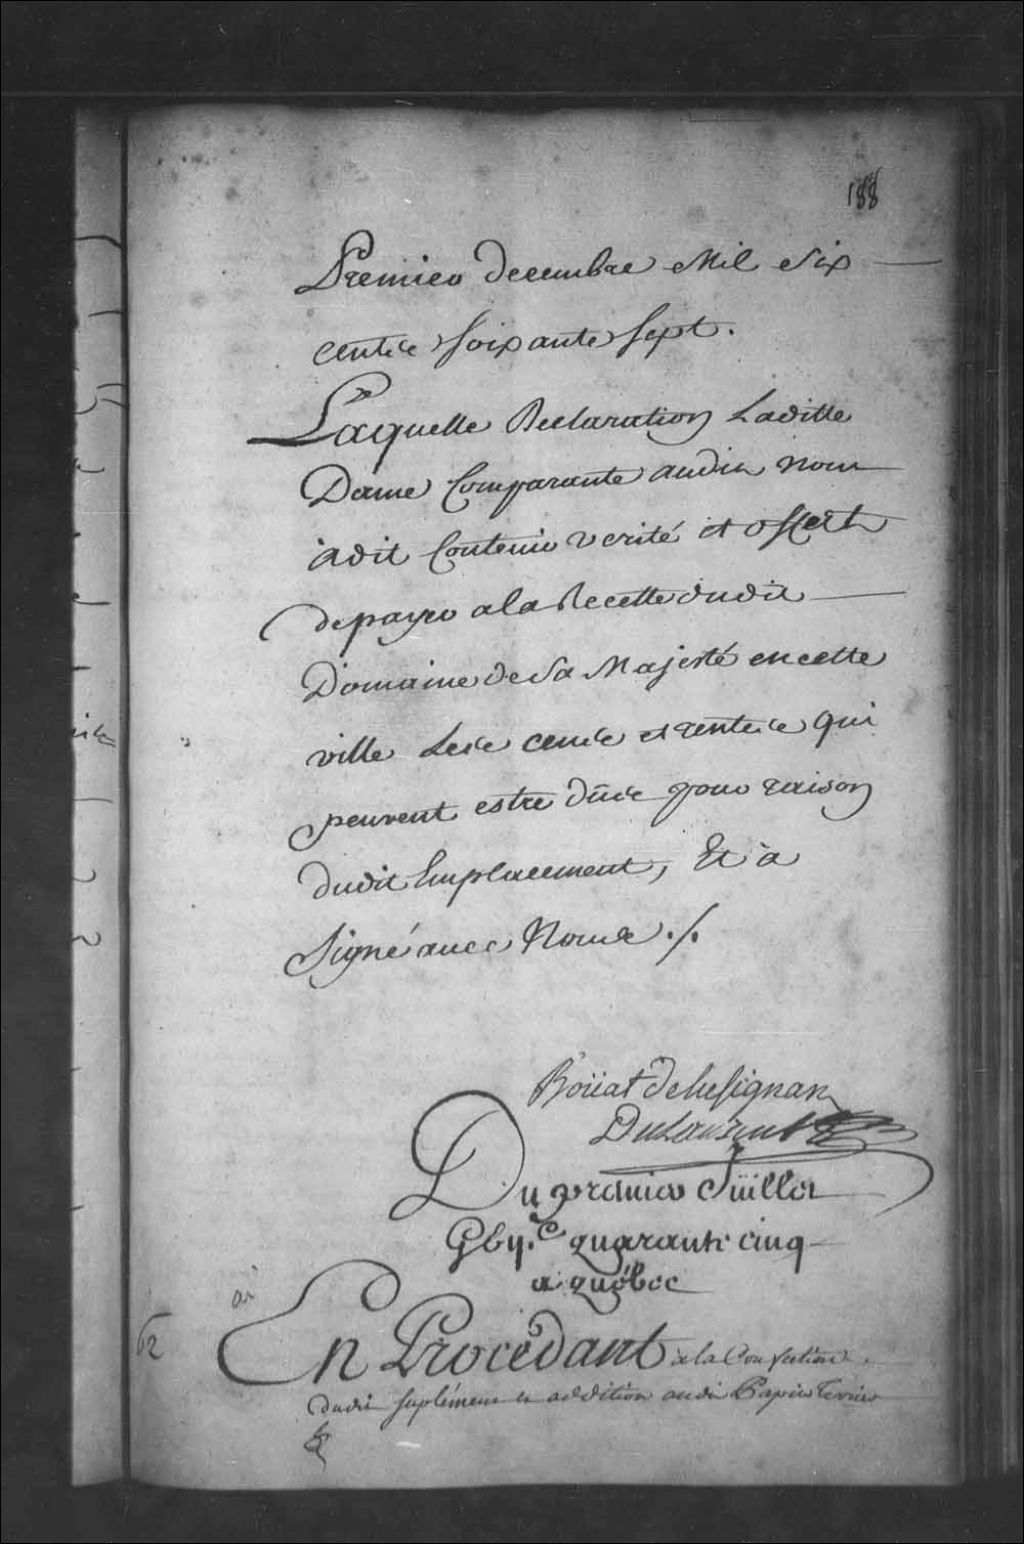 188
Premier decembre Mil Six
cents Soixante Sept.
Laquelle Declaration Laditte
Dame Comparante audit nom
à dit Contenir verité et offert
de payer a la Recette dudit
Domaine de Sa Majesté en cette
ville Les cens et rentes qui
peuvent estre dûes pour raison
dudit Emplacement, Et à
Signé avec Nous ./.
Boüat De lusignan
Dulaurent
Du premier Juillet
Gbij.c quarante cinq
a québec
En Procédant a la Confection
dudit suplément et addition audit Papier Terrier
&
62